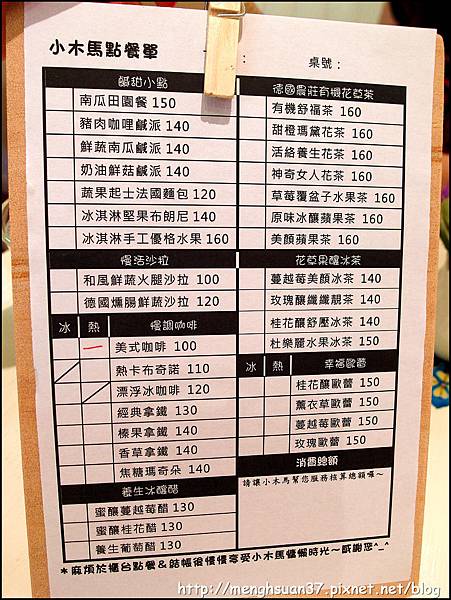 小木馬點餐單
桌號：
鹹甜小點
南瓜田園餐 150
豬肉咖哩鹹派 140
鮮蔬南瓜鹹派 140
奶油鮮菇鹹派 140
蔬果起士法國麵包 120
冰淇淋堅果布朗尼 140
冰淇淋手工優格水果 160
慢活沙拉
和風鮮蔬火腿沙拉 100
德國燻腸鮮蔬沙拉 120
冰 熱 慢調咖啡
美式咖啡 100
熱卡布奇諾 110
漂浮冰咖啡 120
經典拿鐵 130
榛果拿鐵 140
香草拿鐵 140
焦糖瑪奇朵 140
養生冰釀醋
蜜釀蔓越莓醋 130
蜜釀桂花醋 130
養生葡萄醋 130
德國農莊有機花草茶
有機舒福茶 160
甜橙瑪黛花茶 160
活絡養生花茶 160
神奇女人花茶 160
草莓覆盆子水果茶 160
原味冰釀蘋果茶 160
美顏蘋果茶 160
花草果釀冰茶
蔓越莓美顏冰茶 140
玫瑰釀纖纖靚茶 140
桂花釀舒壓冰茶 140
杜樂麗水果冰茶 150
冰 熱 幸福歐蕾
桂花釀歐蕾 150
薰衣草歐蕾 150
蔓越莓歐蕾 150
玫瑰歐蕾 150
消費總額
請讓小木馬幫您服務核算總額囉～
*麻煩於櫃台點餐&結帳後慢慢享受小木馬慵懶時光～感謝您^_^
http://menghsuan37.pixnet.net/blog